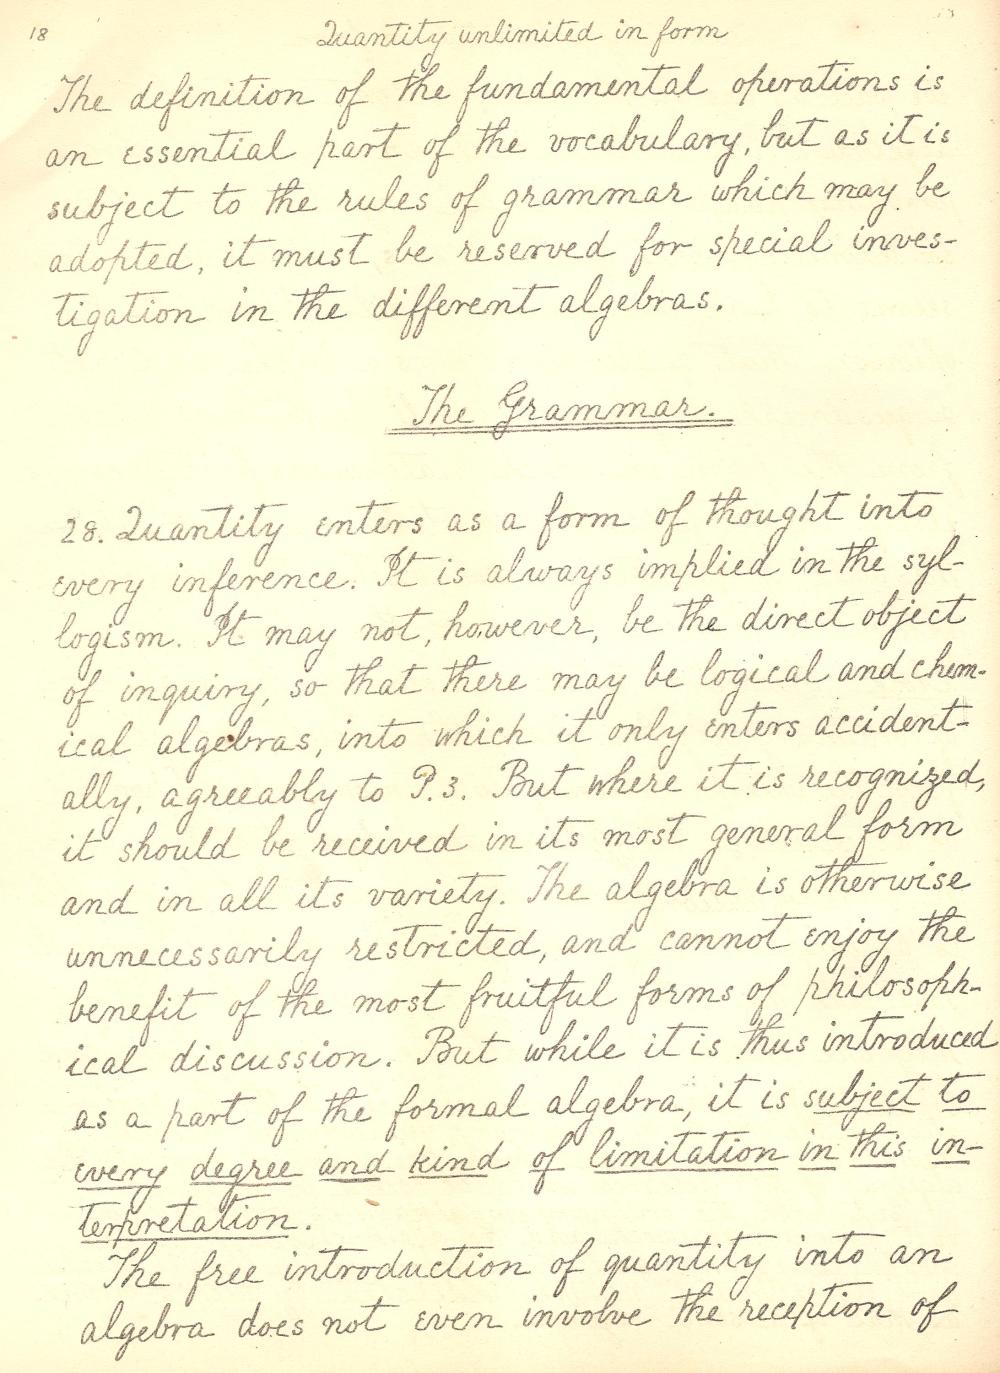 18
Quantity unlimited in form
The definition of the fundamental operations is
an essential part of the vocabulary, but as it is
subject to the rules of grammar which may be
adopted, it must be reserved for special inves-
tigation in the different algebras.
The Grammar.
28. Quantity enters as a form of thought into
every inference. It is always implied in the syl-
logism. It may not, however, be the direct object
of inquiry, so that there may be logical and chem-
ical algebras, into which it only enters accident-
ally, agreeably to P.3. But where it is recognized,
it should be received in its most general form
and in all its variety. The algebra is otherwise
unnecessarily restricted, and cannot enjoy the
benefit of the most fruitful forms of philosoph-
ical discussion. But while it is thus introduced
as a part of the formal algebra, it is subject to
every degree and kind of limitation in this in-
terpretation.
The free introduction of quantity into an
algebra does not even involve the reception of